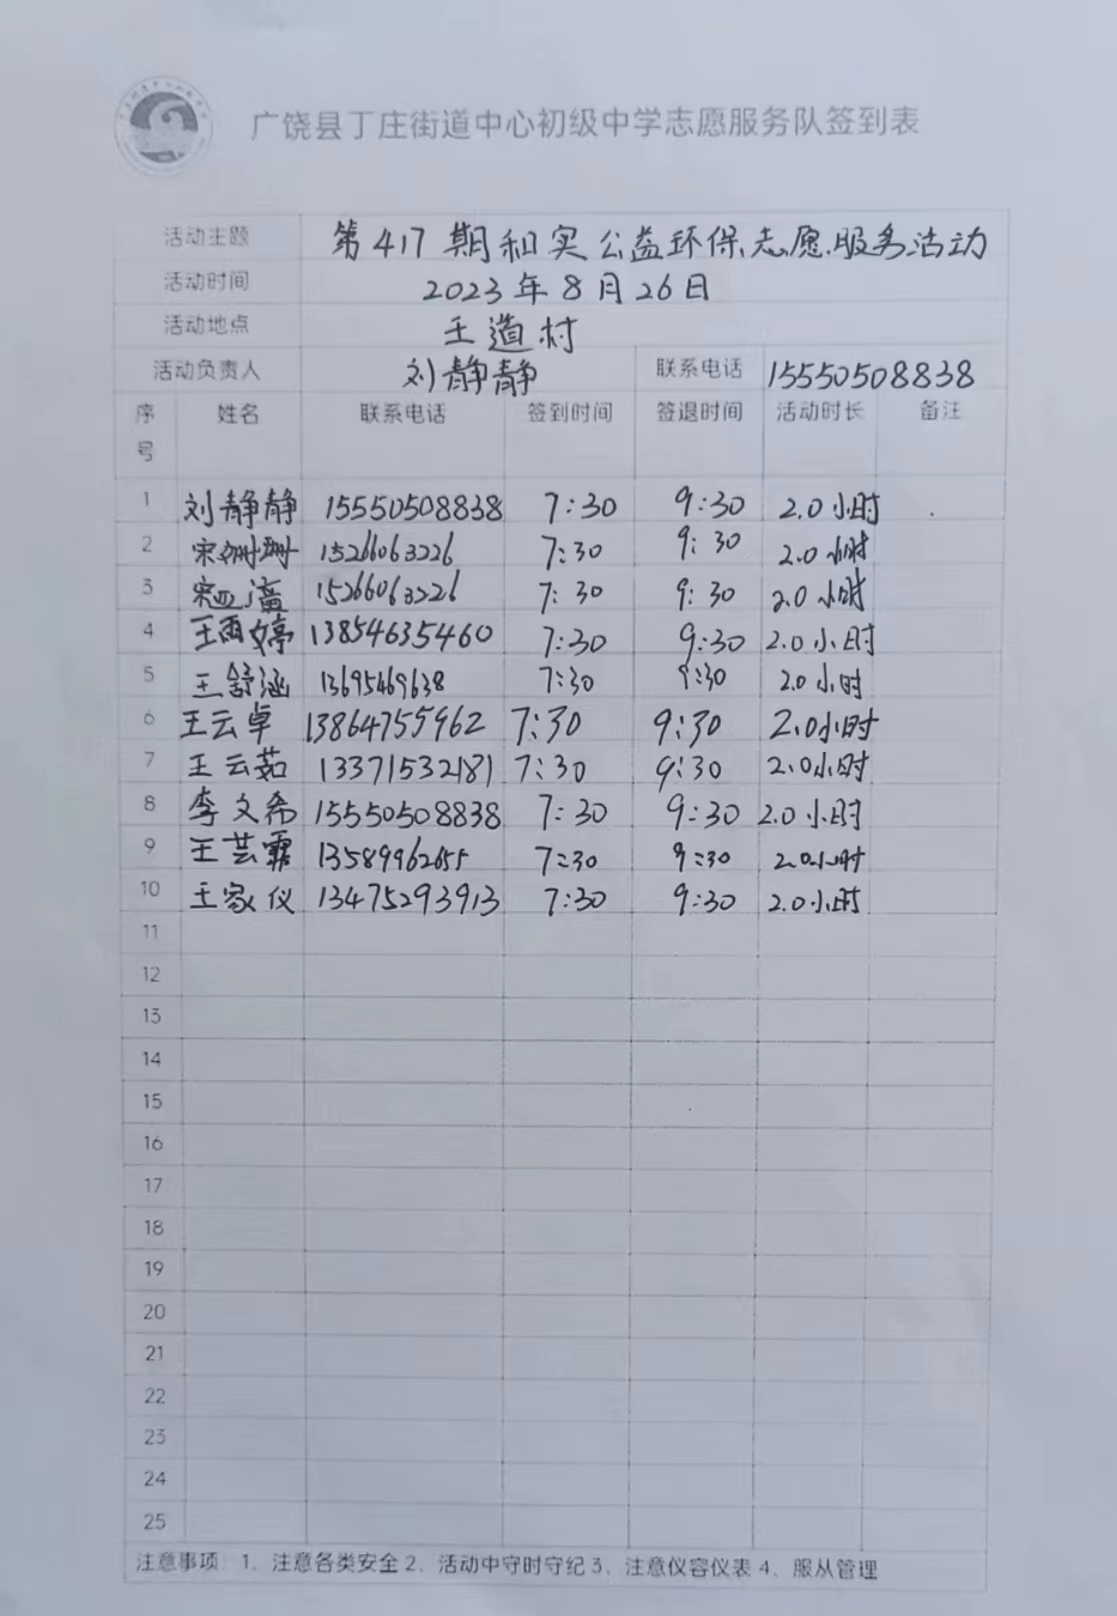 广饶县丁庄街道中心初级中学志愿服务队签到表
活动主题 第417期和实公益环保志愿服务活动
活动时间 2023年8月26日
活动地点 王道村
活动负责人 刘静静 联系电话 15550508838
序号 姓名 联系电话 签到时间 签退时间 活动时长 备注
1 刘静静 15550508838 7:30 9:30 2.0小时
2 宋姗珊 15266063226 7:30 9:30 2.0小时
3 宋亚潇 15266063226 7:30 9:30 2.0小时
4 王雨婷 13854635460 7:30 9:30 2.0小时
5 王舒涵 13695469638 7:30 9:30 2.0小时
6 王云卓 13864755962 7:30 9:30 2.0小时
7 王云茹 13371532181 7:30 9:30 2.0小时
8 李文希 15550508838 7:30 9:30 2.0小时
9 王芸霏 13589962655 7:30 9:30 2.0小时
10 王家仪 13475293913 7:30 9:30 2.0小时
11
12
13
14
15
16
17
18
19
20
21
22
23
24
25
注意事项：1、注意各类安全 2、活动中守时守纪 3、注意仪容仪表 4、服从管理